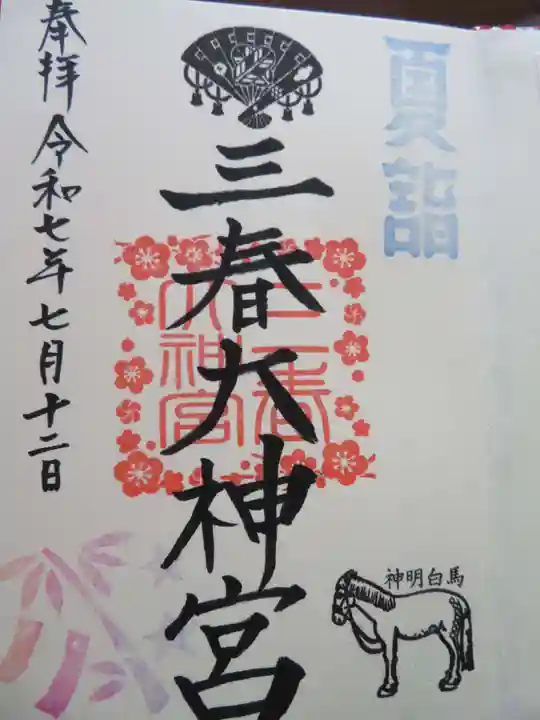 夏詣
三春大神宮
三春大神宮
奉拝 令和七年七月十二日
神明白馬